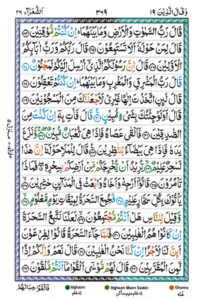 وَقَالَ الَّذِيْنَ ١٩ ٣٦٩ الشُّعَرَآء ٢٦
قَالَ رَبُّ السَّمٰوٰتِ وَالْاَرْضِ وَمَا بَيْنَهُمَا ؕ اِنْ كُنْتُمْ مُّوْقِنِيْنَ
قَالَ لِمَنْ حَوْلَهٗۤ اَلَا تَسْتَمِعُوْنَ قَالَ رَبُّكُمْ وَرَبُّ اٰبَآئِكُمُ
الْاَوَّلِيْنَ قَالَ اِنَّ رَسُوْلَكُمُ الَّذِيْۤ اُرْسِلَ اِلَيْكُمْ لَمَجْنُوْنٌ
قَالَ رَبُّ الْمَشْرِقِ وَالْمَغْرِبِ وَمَا بَيْنَهُمَا ؕ اِنْ كُنْتُمْ تَعْقِلُوْنَ
قَالَ لَئِنِ اتَّخَذْتَ اِلٰهًا غَيْرِيْ لَاَجْعَلَنَّكَ مِنَ الْمَسْجُوْنِيْنَ
قَالَ اَوَلَوْ جِئْتُكَ بِشَيْءٍ مُّبِيْنٍ قَالَ فَاْتِ بِهٖۤ اِنْ كُنْتَ مِنَ
الصّٰدِقِيْنَ فَاَلْقٰى عَصَاهُ فَاِذَا هِيَ ثُعْبَانٌ مُّبِيْنٌ وَّنَزَعَ
يَدَهٗ فَاِذَا هِيَ بَيْضَآءُ لِلنّٰظِرِيْنَ قَالَ لِلْمَلَاِ حَوْلَهٗۤ اِنَّ هٰذَا
لَسٰحِرٌ عَلِيْمٌ يُّرِيْدُ اَنْ يُّخْرِجَكُمْ مِّنْ اَرْضِكُمْ بِسِحْرِهٖ فَمَاذَا
تَاْمُرُوْنَ قَالُوْۤا اَرْجِهْ وَاَخَاهُ وَابْعَثْ فِي الْمَدَآئِنِ حٰشِرِيْنَ
يَاْتُوْكَ بِكُلِّ سَحَّارٍ عَلِيْمٍ فَجُمِعَ السَّحَرَةُ لِمِيْقَاتِ يَوْمٍ مَّعْلُوْمٍ
وَّقِيْلَ لِلنَّاسِ هَلْ اَنْتُمْ مُّجْتَمِعُوْنَ لَعَلَّنَا نَتَّبِعُ السَّحَرَةَ
اِنْ كَانُوْا هُمُ الْغٰلِبِيْنَ فَلَمَّا جَآءَ السَّحَرَةُ قَالُوْا لِفِرْعَوْنَ
اَئِنَّ لَنَا لَاَجْرًا اِنْ كُنَّا نَحْنُ الْغٰلِبِيْنَ قَالَ نَعَمْ وَاِنَّكُمْ اِذًا
لَّمِنَ الْمُقَرَّبِيْنَ قَالَ لَهُمْ مُّوْسٰۤى اَلْقُوْا مَاۤ اَنْتُمْ مُّلْقُوْنَ
فَاَلْقَوْا حِبَالَهُمْ
Idghaam Idghaam Meem Saakin Ghunna